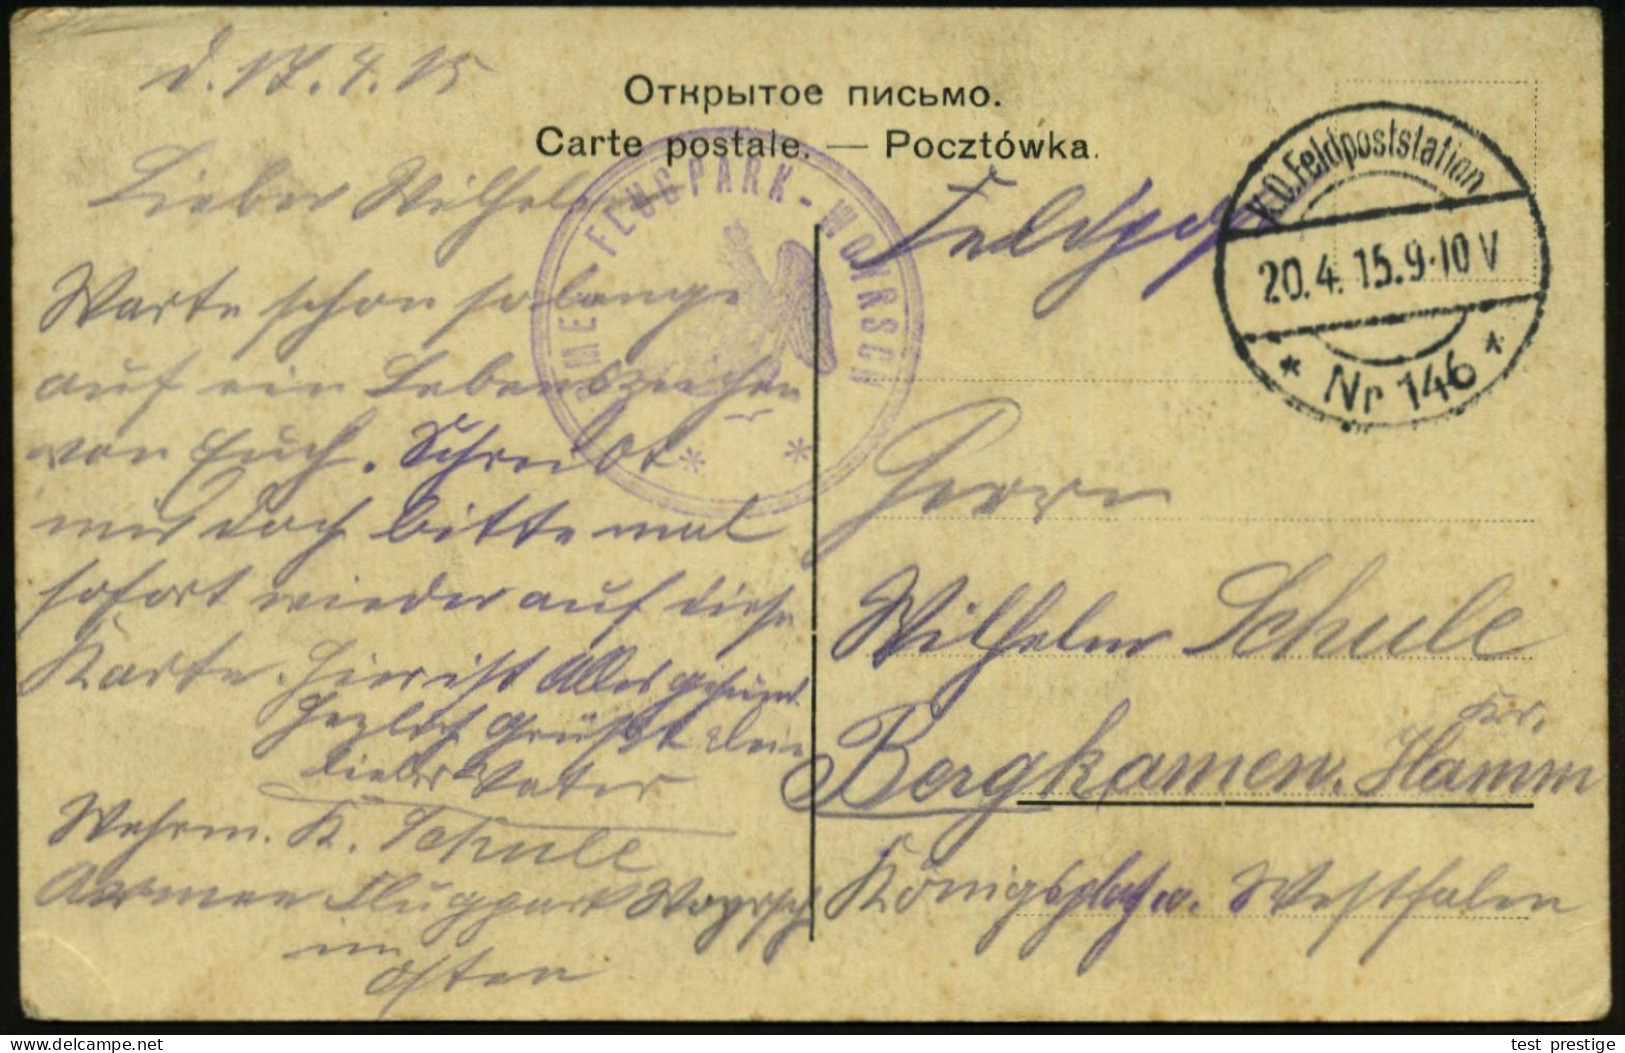 d. 17.4.15
Открытое письмо.
Carte postale. — Pocztówka.
Feldpost
K.D. Feldpoststation
20.4.15.9-10V
* Nr 146 *
ARMEE-FLUGPARK-WOYRSCH
* *
Lieber Wilhelm
Warte schon so lange
auf ein Lebenszeichen
von Euch. Schreibt
mir doch bitte mal
sofort wieder auf diese
Karte. Hier ist Alles gesund.
Herzlich grüßt Dein
lieber Vater
Wehrm. K. Schule
Armee Flugpark Woyrsch
im
Osten
Herrn
Wilhelm Schule
Bergkamen. Kr. Hamm
Königsplatz. Westfalen
test_prestige
delcampe.net